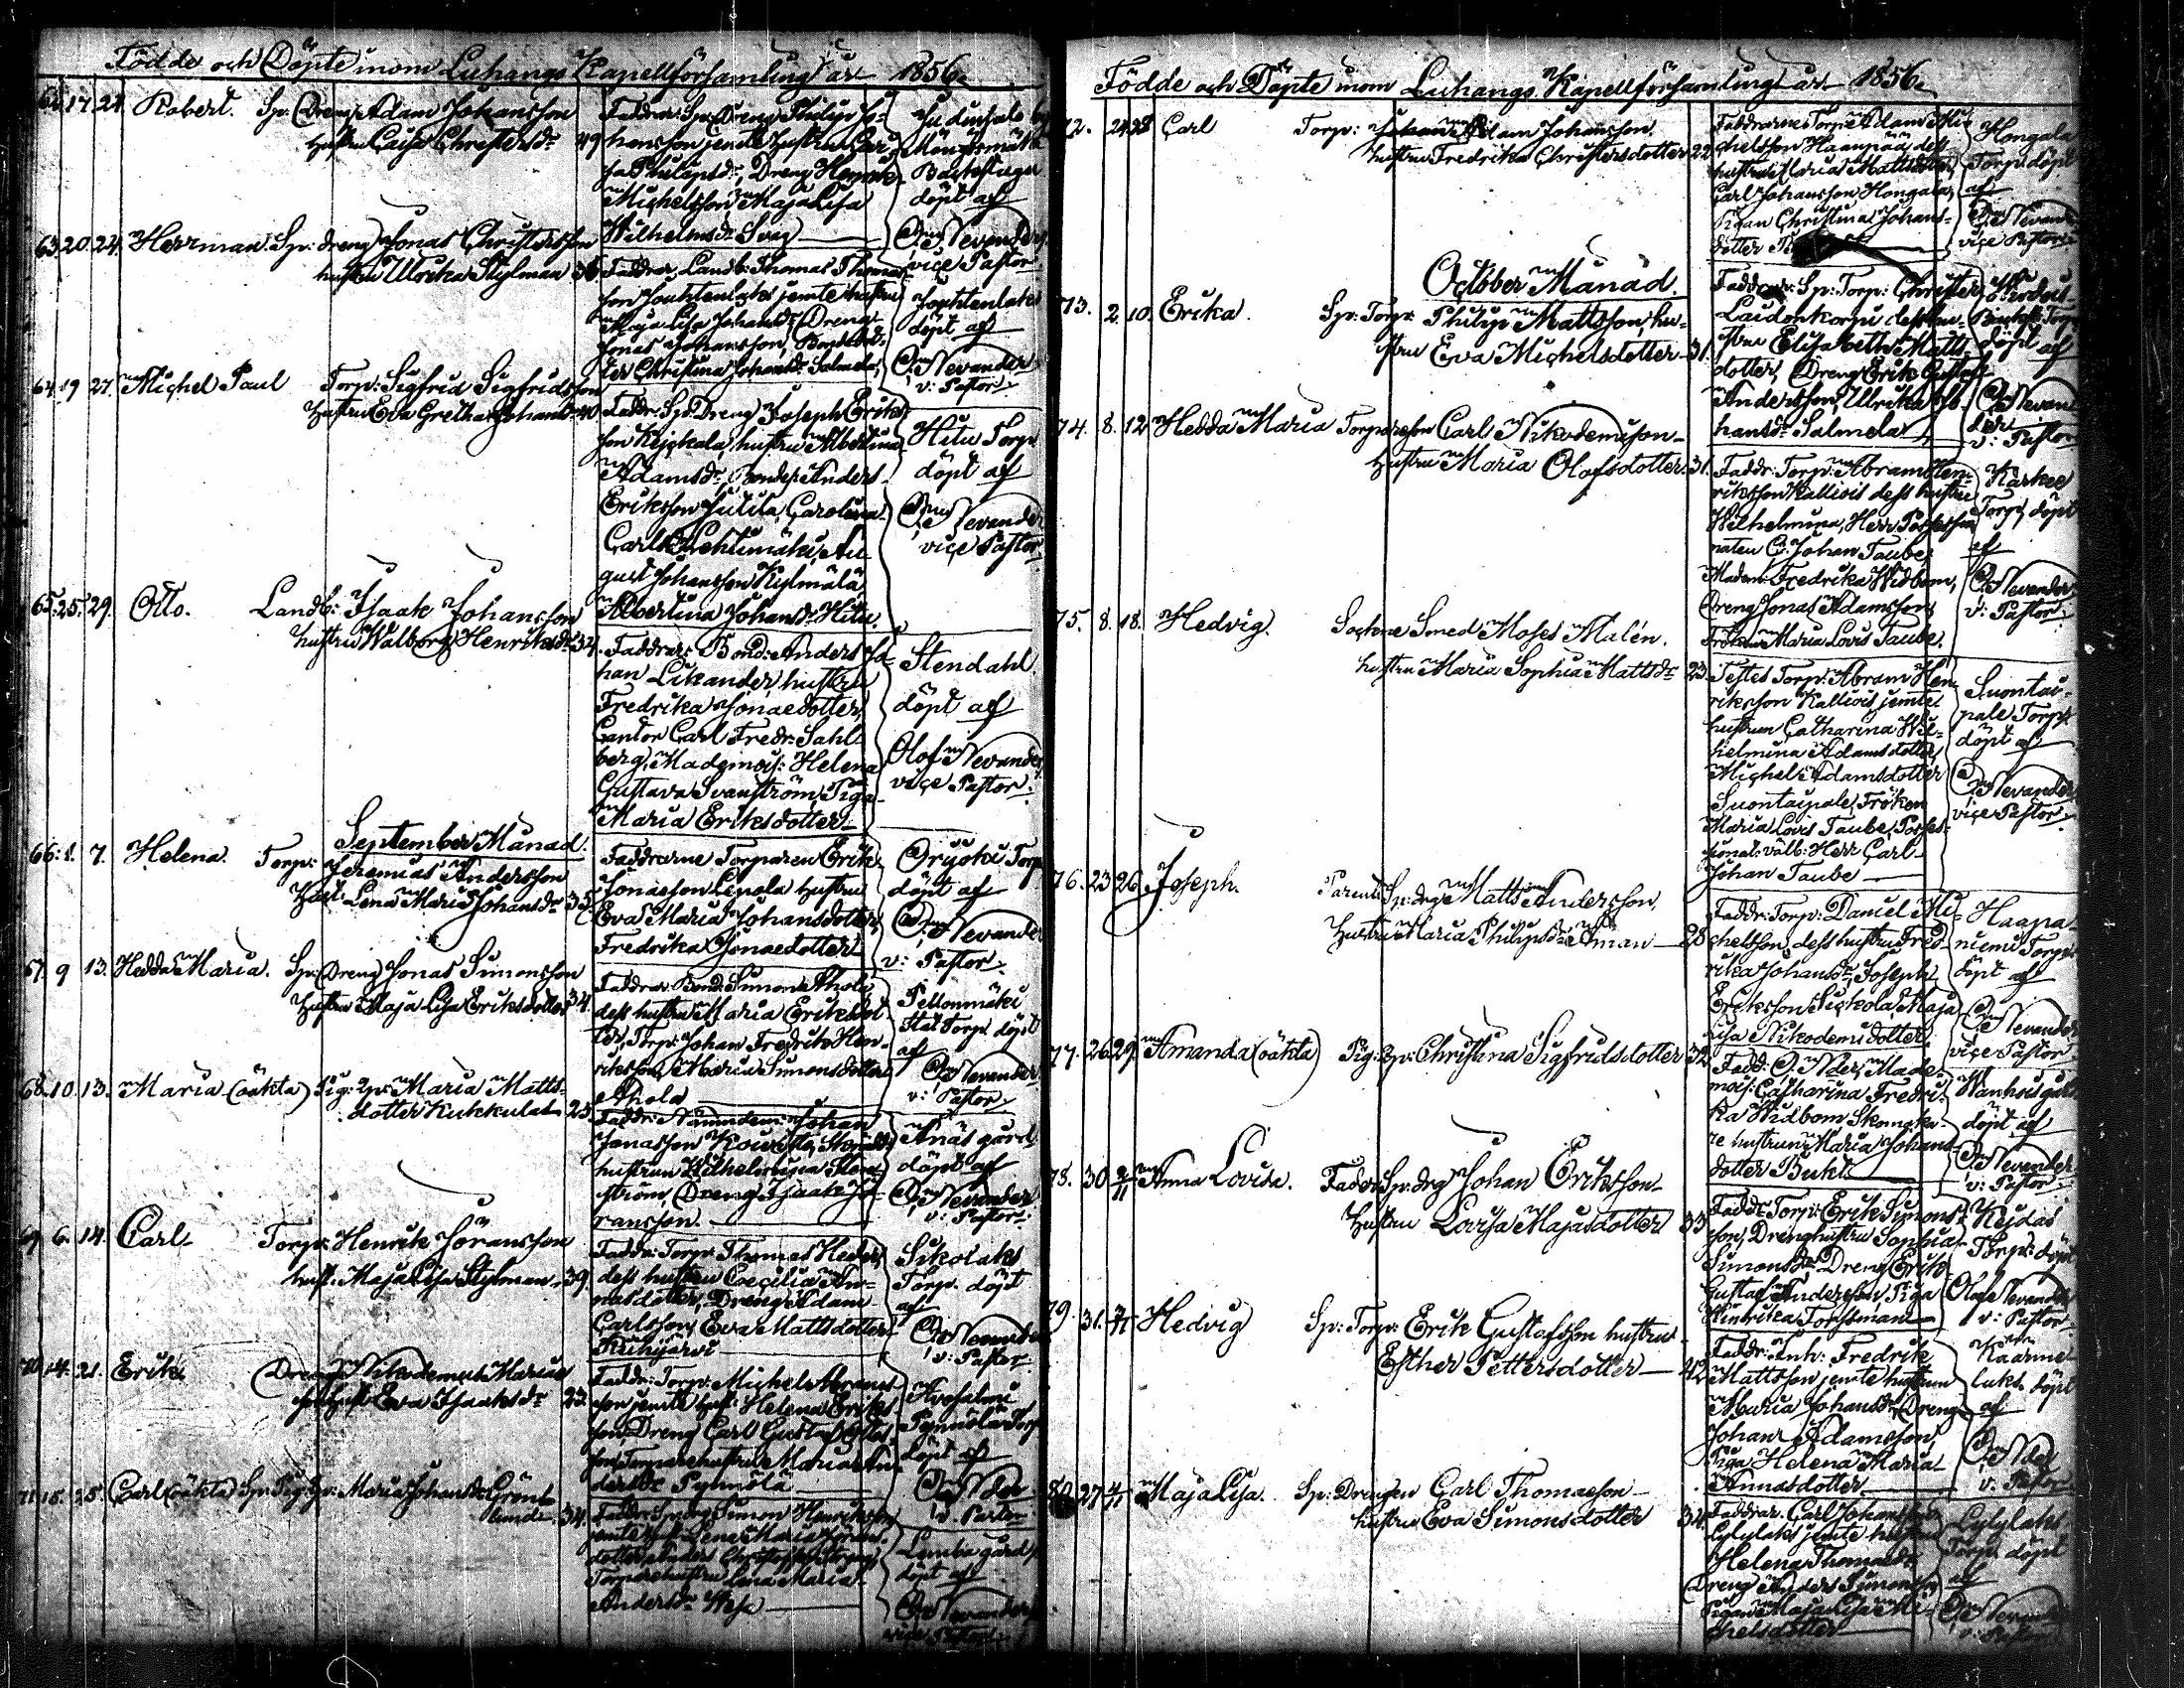 Födde och Döpte inom Luhangs Kapellförsamling år 1856.
62. 17. 24. Robert. Sp: Dreng Adam Johansson
hustru Caisa Christersdr 49
Faddrar: Sp: Dreng Philip Jo-
hansson jemte hustru
Philipsdr, Dreng Henrik
Michelsson, Maja Lisa
Wilhelmsdr
döpt af
O. Nevander
vice Pastor
63. 20. 24. Herrman. Sp: dreng Jonas Christersson
hustru Ulrika Stylman 36
Faddrar, Landb: Thomas Thomas-
son Jouhtenlaks jemte hustru
Maja Lisa Johansdr, Dreng
Jonas Johansson, Bondedot-
ter Christina Johansdr Salmela
Jouhtenlaks
döpt af
O. Nevander
v: Pastor
64. 19. 27. Michel Paul Torp: Sigfrid Sigfridsson
hustru Eva Gretha Johansdr 40
Faddr: Sp: Dreng Joseph Eriks-
son Keijokala, hustru Albertina
Adamsdr, Bonden Anders
Eriksson Julila, Carolina
Carlsdr Lehtimäki, Au-
gust Johansson Kylmälä
Albertina Johansdr Hitu.
Hitu Torp
döpt af
O. Nevander
vice Pastor
65. 25. 29. Otto. Landb: Isaak Johansson
hustru Walborg Henriksdr 34.
Faddrar: Bond: Anders Jo-
han Likander, hustru
Fredrika Jonaedotter,
Cantor Carl Fredr: Sahl-
berg, Mademois: Helena
Gustava Svanström, Piga
Maria Eriksdotter
Stendahl
döpt af
Olof Nevander
vice Pastor.
September Månad.
66. 1. 7. Helena. Torp: Jeremias Andersson
Hust: Lena Maria Johansdr 35.
Faddrarne Torparen Erik
Jonaesson Lepola hustru
Eva Maria Johansdotter,
Fredrika Jonaedotter
Torp
döpt af
O. Nevander
v: Pastor
67. 9 13. Hedda Maria. Sp: Dreng Jonas Simonsson
hustru Maja Lisa Eriksdotter 34.
Faddrar Bond: Simon Ahola
dess hustru Maria Eriksdot-
ter, Torp: Johan Fredrik Hen-
riksson, Maria Simonsdotter
Ahola
Pellonmäki
Torp: döpt
af
O. Nevander
v: Pastor
68. 10. 13. Maria (oäkta) Pig: Maria Matts-
dotter Kukkula 25
Faddr: Nämndem: Johan
Jonasson
hustrun Wilhelmina
ström, Dreng Isaak Jö-
ransson.
Änäs gård
döpt af
O. Nevander
v: Pastor
69. 6. 14. Carl Torp: Henrik Jöransson
hust: Maja Lisa Stylman 39.
Faddr: Torp: Thomas Heder,
dess hustru Coecilia
dotter, Dreng Adam
Carlsson, Eva Mattsdotter
Sikolaks
Torp. döpt
af
O. Nevander
v: Pastor
70. 14. 21. Erik Dreng Nikodemus
hust Eva Isaaksdr 23.
Faddr: Torp: Michel Abrams-
son jemte hust: Helena Eriks-
Dreng Carl Gustaf
Torparehustru Maria An-
dersdr Pynnölä
Avosalmi
Pynnölä Torp
döpt af
O. Nder
v. Pastor
71. 15. 25. Carl (oäkta) Sp: Pig: Maria Johansdr Grönt-
lund 34.
Faddr: Sp: Simon Henriksson
jemte hust: Lena Maria
dotter
Torparehustru Lena Maria
Andersdr
Lemba gård
döpt af
O. Nevander
vice Pastor
Födde och Döpte inom Luhangs Kapellförsamling år 1856.
72. 24. 28 Carl Torp: Adam Johansson
hustru Fredrika Christersdotter 22
Faddrarne Torp: Adam Mi-
chelsson Haanpää, dess
hustru Maria Mattsdotter,
Carl Johansson Hongala,
Pigan Christina Johans-
dotter
Hongala
Torp: döpt
af
O. Nevander
vice Pastor
October Månad.
73. 2. 10. Erika. Sp: Torp: Philip Mattsson, hu-
stru Eva Michelsdotter 31.
Faddrar: Sp: Torp: Christer
Laidonkorpi dess hu-
stru Elisabeth Matts-
dotter, Dreng Erik Gustaf
Andersson, Ulrika Jo-
hansdr Salmela
döpt af
O. Nevan-
der
v: Pastor
74. 8. 12 Hedda Maria Torpareson Carl Nikodemison
hustru Maria Olofsdotter. 31.
Faddr: Torp: Abram Hen-
riksson Kalliois dess hustru
Wilhelmina, Herr Possessio-
naten C. Johan Taube,
Madem: Fredrika Widbom,
Dreng Jonas Adamsson,
Fröken Maria Lovis Taube.
Karkee
Torp, döpt
af
O. Nevander
v: Pastor
75. 8. 18. Hedvig. Sockne Smed Moses Malén.
hustru Maria Sophia Mattsdr 23.
Testes Torp: Abram Hen-
riksson Kalliois jemte
hustrun Catharina Wil-
helmina Adamsdotter,
Michel Adamsdotter
Suontaipale, Fröken
Maria Lovis Taube, Posses-
sionat: välb: Herr Carl
Johan Taube
Suontai-
pale Torp:
döpt af
O. Nevander
vice Pastor
76. 23 26. Joseph. Parent: Sp: drg Matts Andersson,
hustru Maria Philipsdr Åman 28
Faddr: Torp: Daniel Mi-
chelsson, dess hustru Fred-
rika Johansdr, Joseph
Eriksson Sickola, Maja
Lisa Nikodemidotter
Haapa-
niemi Torp:
döpt af
O. Nevander
vice Pastor
77. 26. 29. Amanda (oäkta) Pig: Christina Sigfridsdotter 32
Fadd: O. Nder, Made-
mois: Catharina Fredri-
ka Widbom
re hustrun Maria Johans-
dotter Bukt
Wanhois gård
döpt af
O. Nevander
v: Pastor
78. 30 2/11 Anna Lovisa. Fader Sp: drg Johan Eriksson
hustru Lovisa Majasdotter 33
Faddr: Torp: Erik Simons-
son, Drenghustru Sophia
Simonsdr Dreng Erik
Gustaf Andersson, Piga
Hindrika Forssman
Keidas
Torp: döpt
Olof Nevander
v: Pastor
79. 31. Hedvig Sp: Torp: Erik Gustafsson hustru
Esther Pettersdotter 42
Faddr: Inh: Fredrik
Mattsson jemte hustrun
Maria Johansdr, Dreng
Johan Adamsson,
Piga Helena Maria
Annasdotter
döpt
af
O. Nder
v: Pastor
80. 27 Maja Lisa. Sp: Drengen Carl Thomasson
hustru Eva Simonsdotter 34.
Faddrar: Carl Johansson
Lylylaks jemte hustru
Helena Thomasdr
Dreng Anders Simonsson
Pigan Maja Lisa Mi-
chelsdotter
Lylylaks
Torp: döpt
af
O. Nevander
v: Pastor